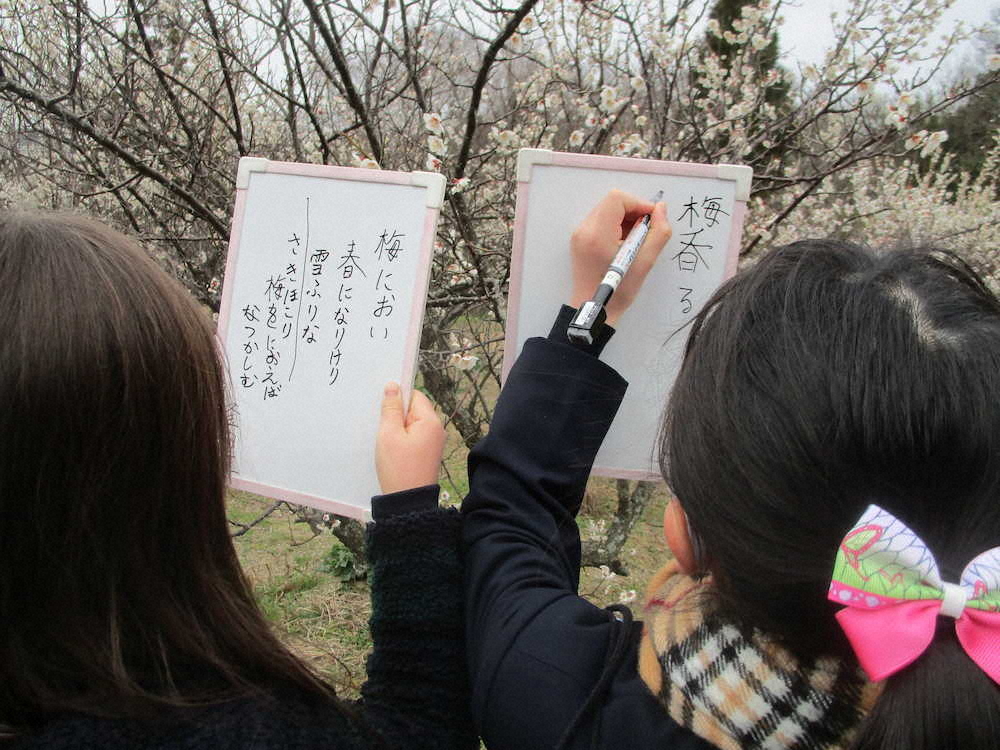 梅におい
春になりけり
雪ふりな
さきほこり
梅をにおえば
なつかしむ
梅香る